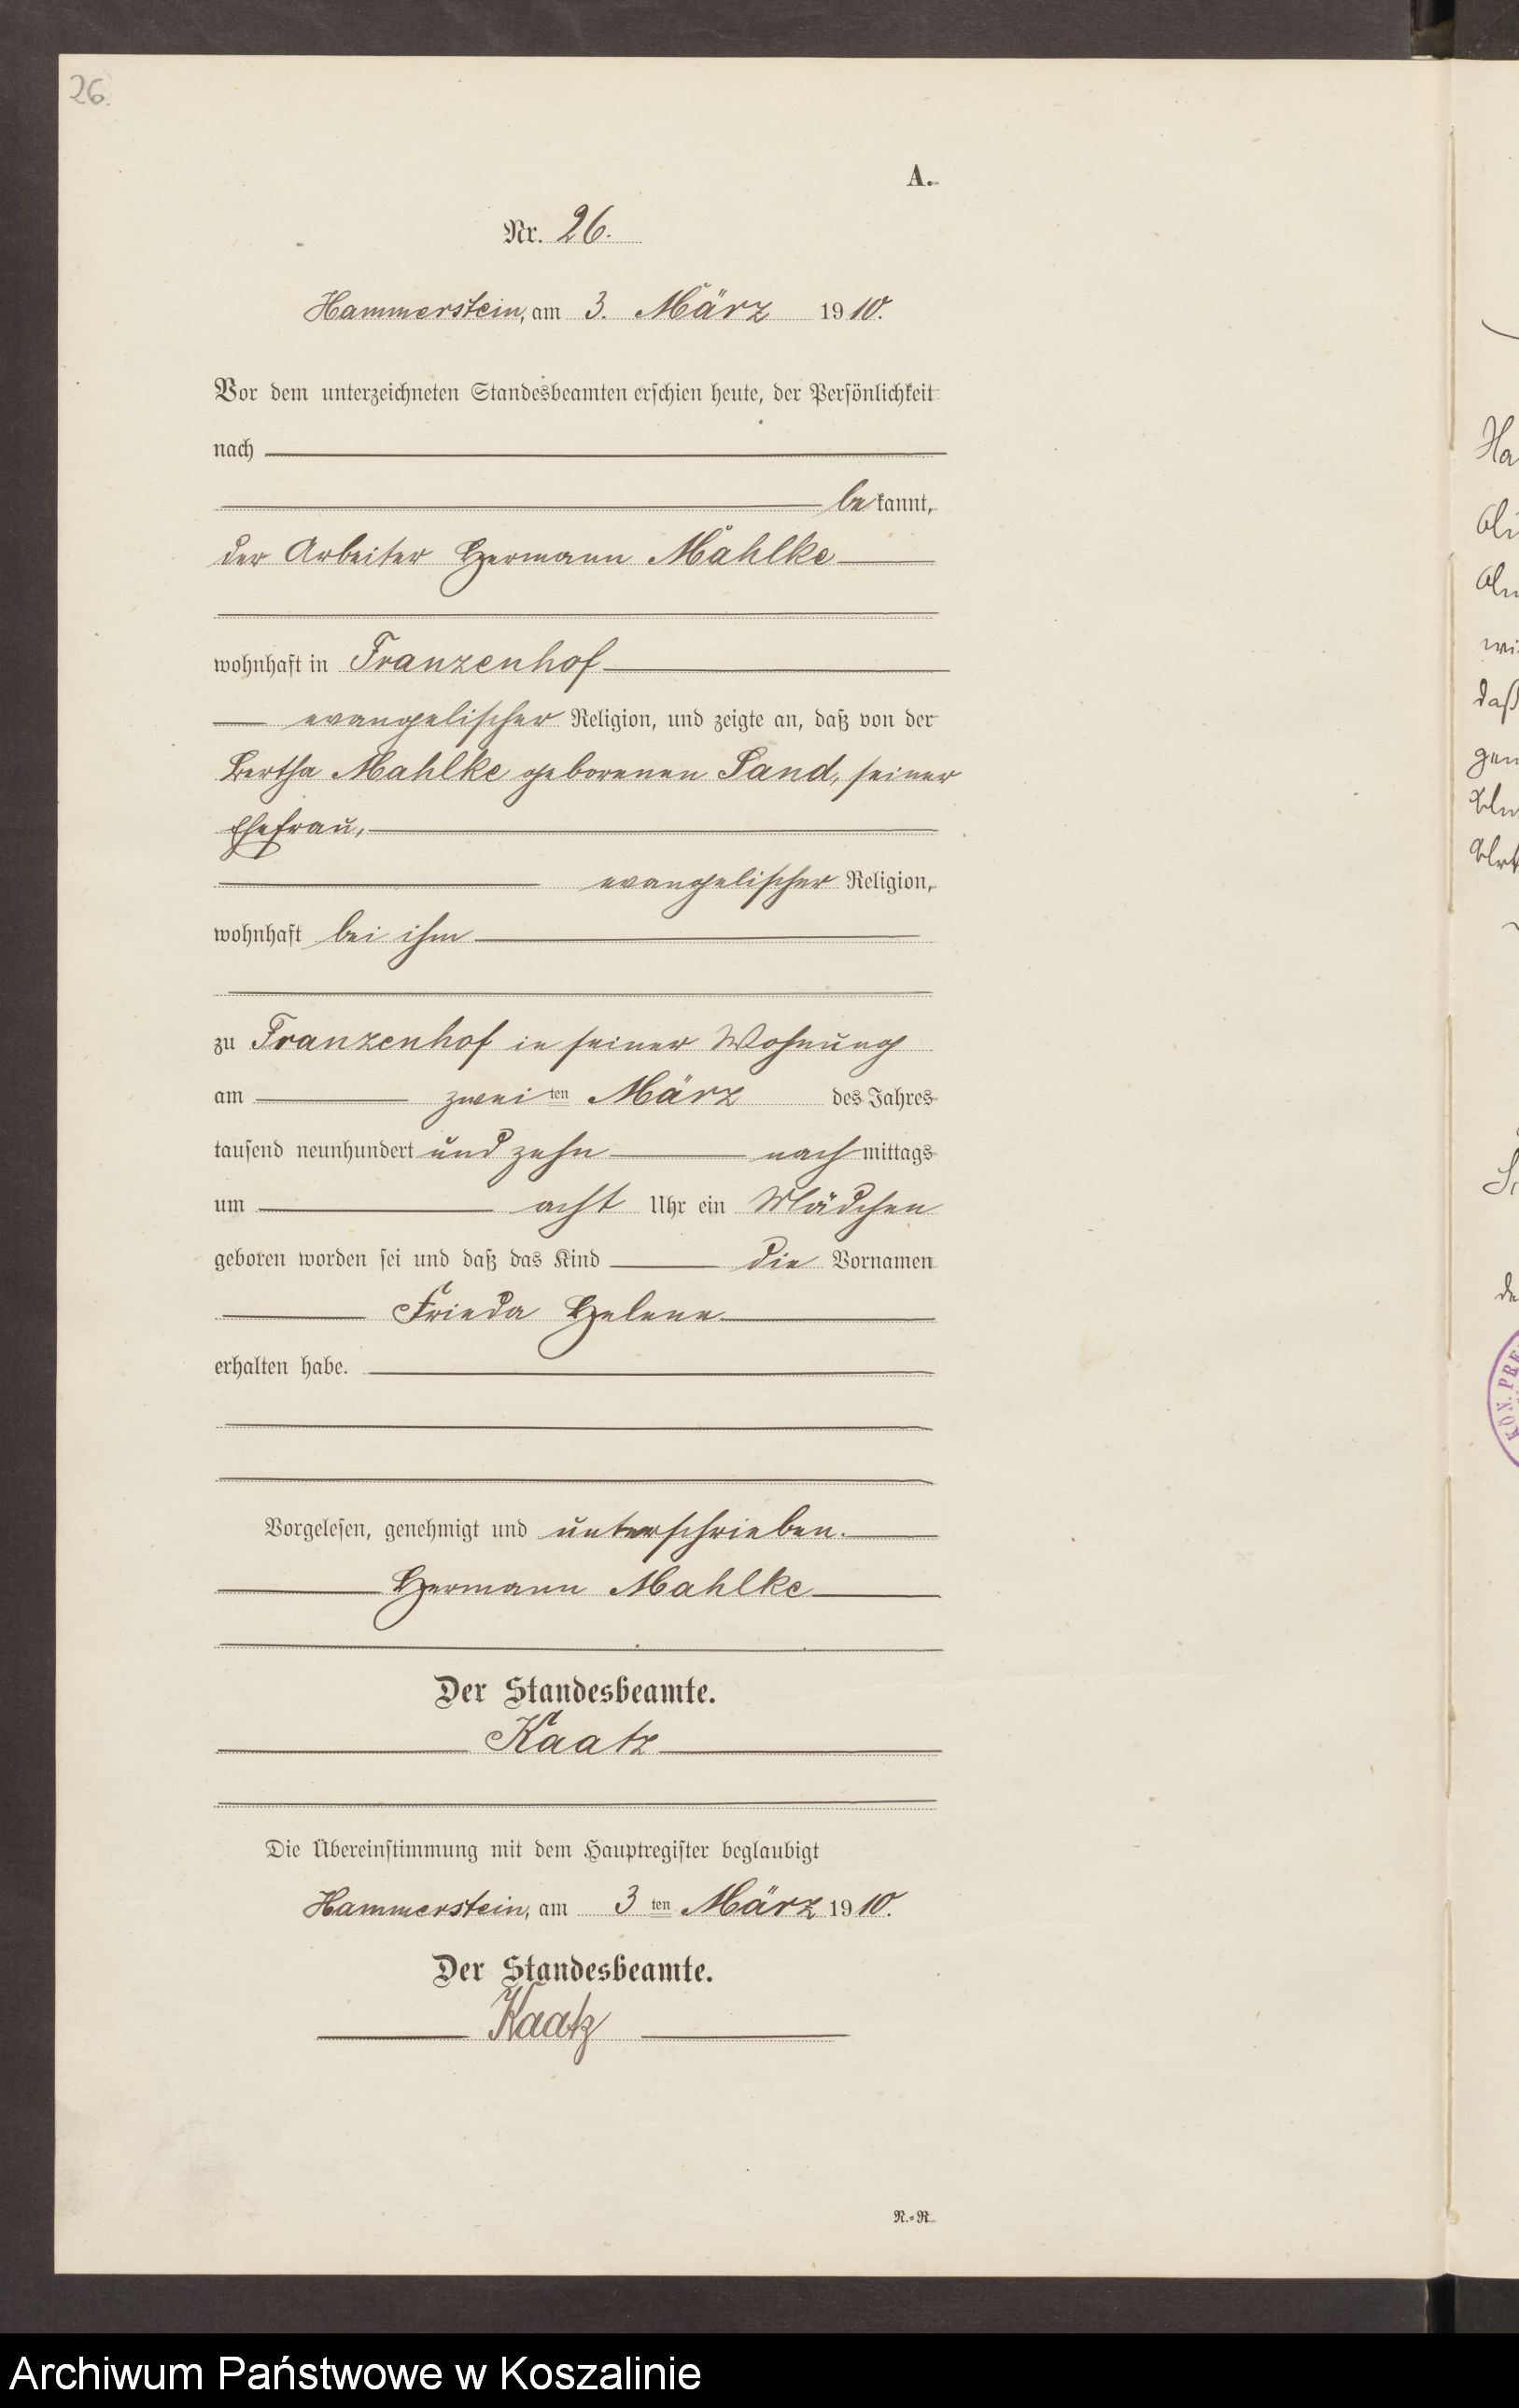 26.
A.
Nr. 26.
Hammerstein, am 3. März 1910.
Vor dem unterzeichneten Standesbeamten erschien heute, der Persönlichkeit
nach
bekannt,
der Arbeiter Hermann Mahlke
wohnhaft in Franzenhof
evangelischer Religion, und zeigte an, daß von der
Bertha Mahlke geborenen Sand, seiner
Ehefrau,
evangelischer Religion,
wohnhaft bei ihm
zu Franzenhof in seiner Wohnung
am zweiten März des Jahres
tausend neunhundert und zehn nachmittags
um acht Uhr ein Mädchen
geboren worden sei und daß das Kind die Vornamen
Frieda Helene
erhalten habe.
Vorgelesen, genehmigt und unterschrieben.
Hermann Mahlke
Der Standesbeamte.
Kaatz
Die Übereinstimmung mit dem Hauptregister beglaubigt
Hammerstein, am 3ten März 1910.
Der Standesbeamte.
Kaatz
N.=R.
Archiwum Państwowe w Koszalinie